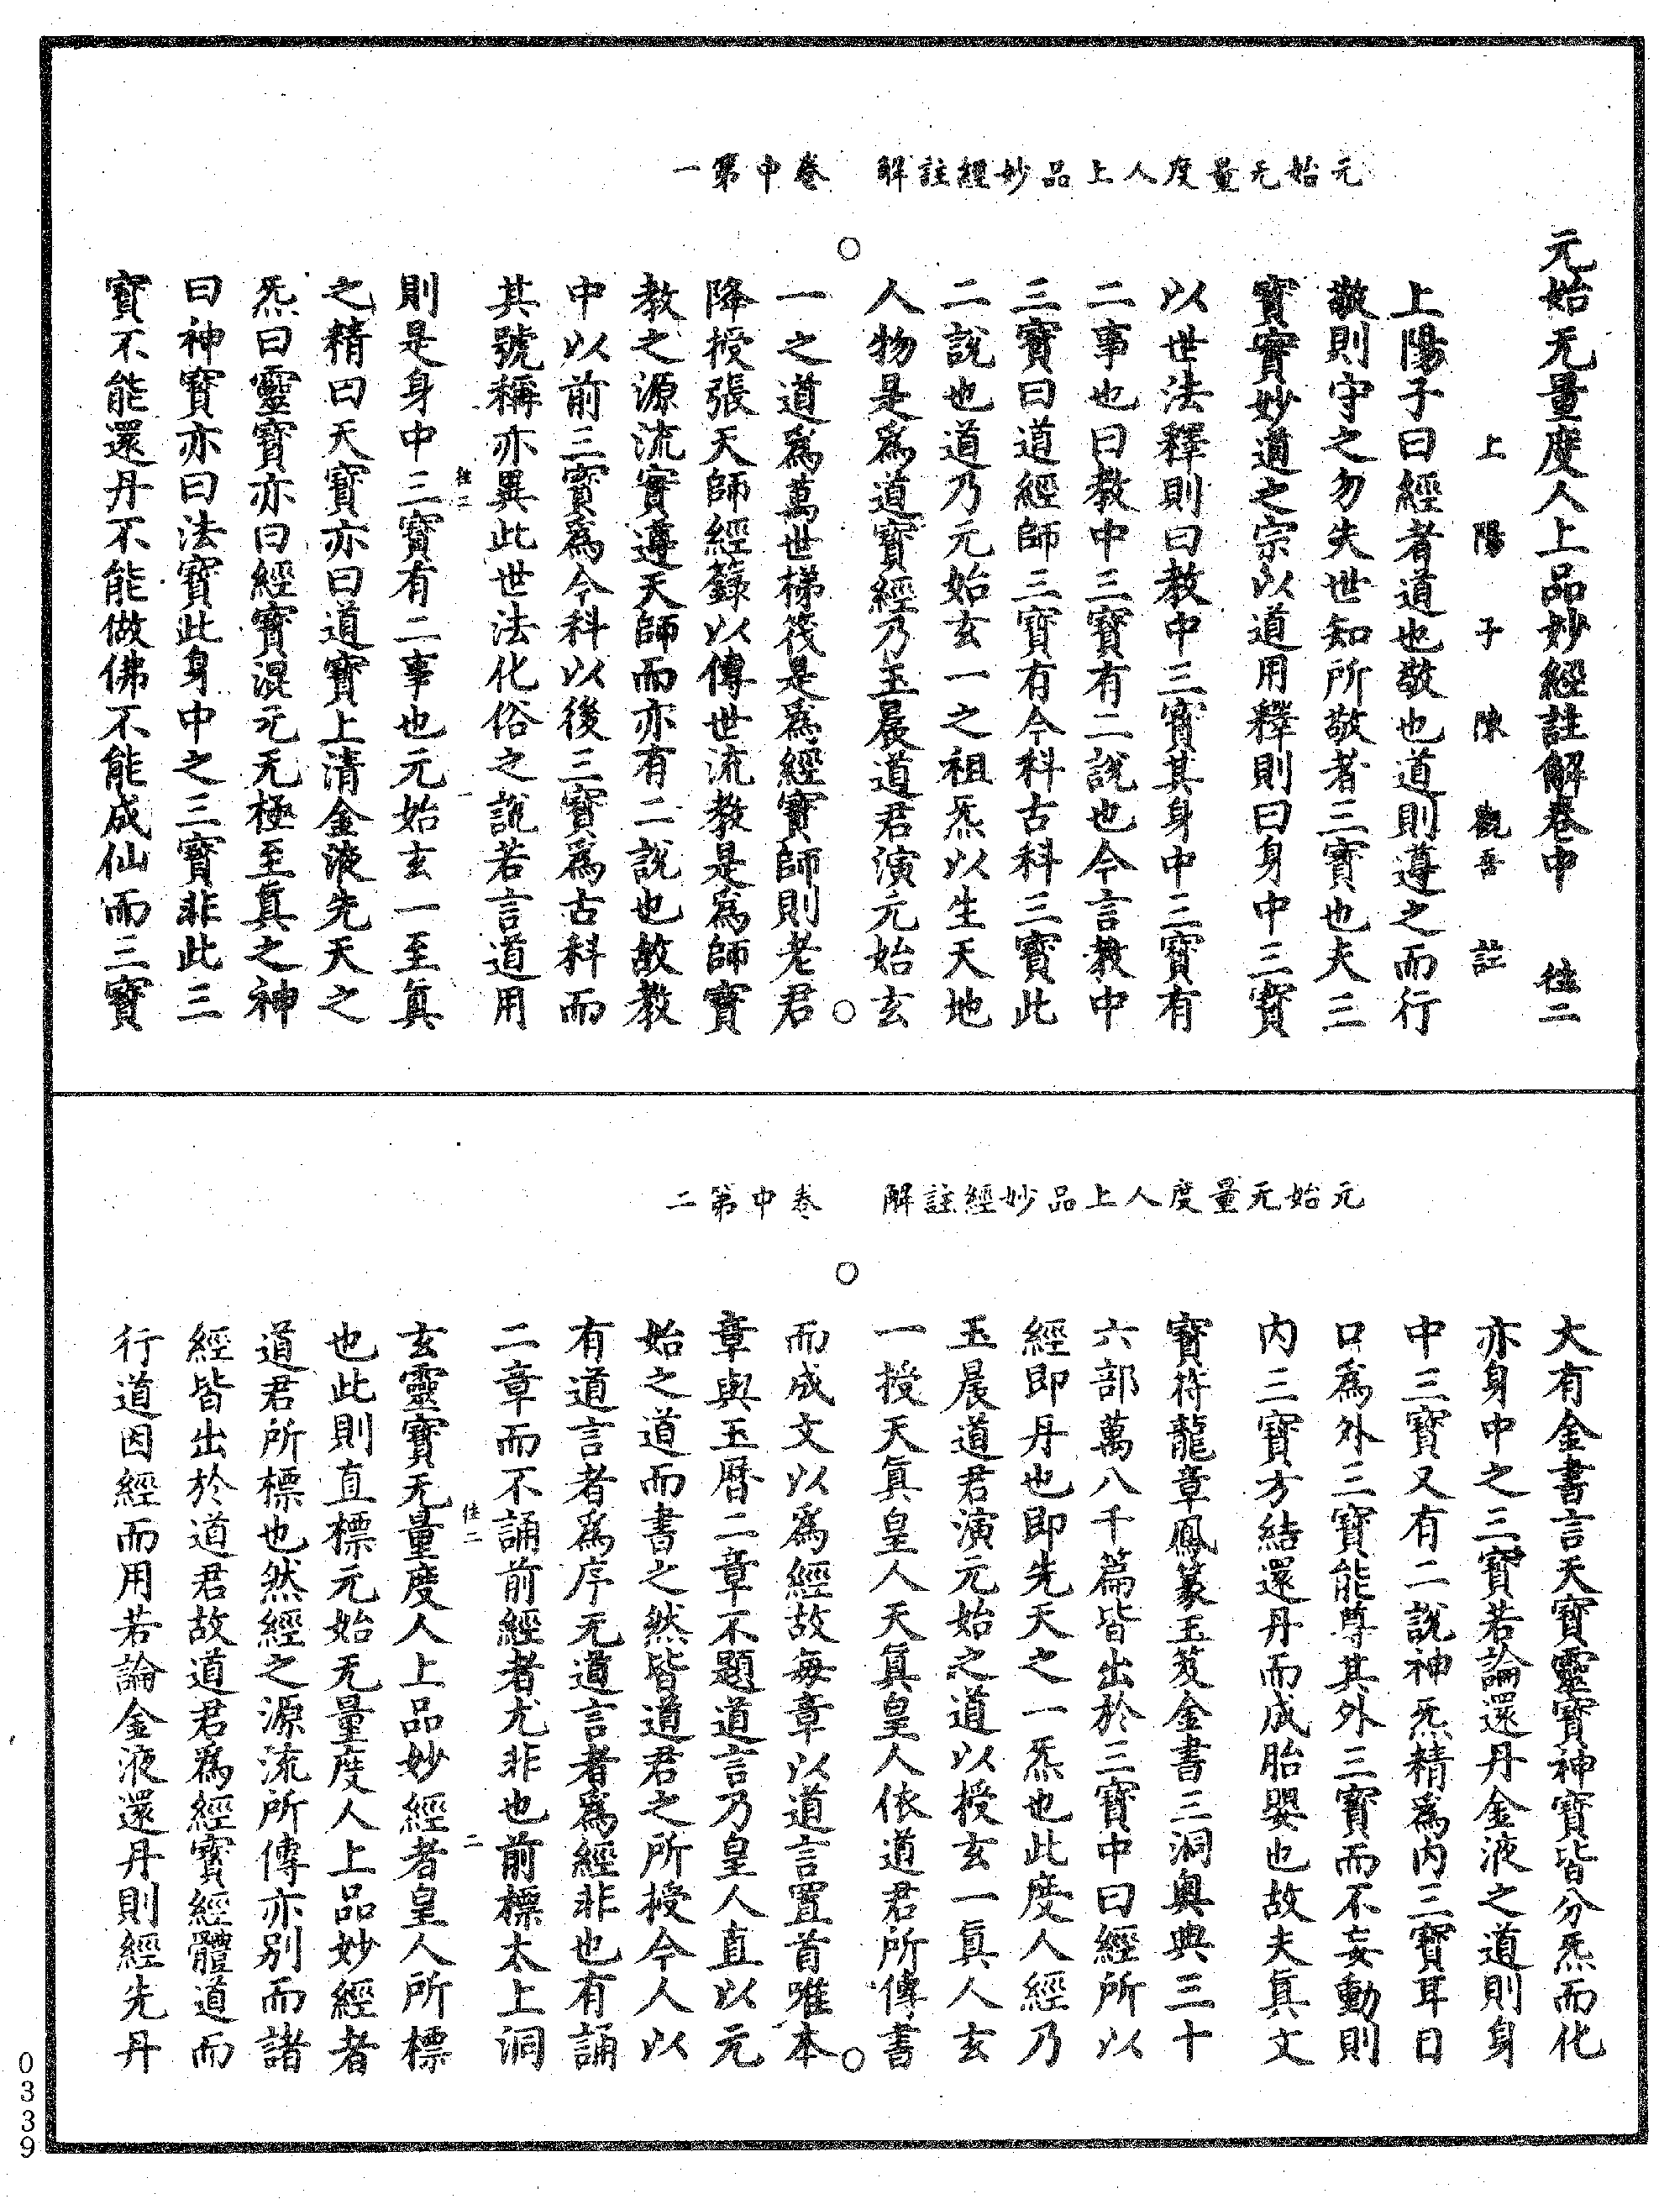 元始无量度人上品妙經註解　卷中第一
元始无量度人上品妙經註解卷中　徃二
上陽子陳觀吾註
上陽子曰經者道也敬也道則遵之而行
敬則守之勿失世知所敬者三寶也夫三
寶寶妙道之宗以道用釋則曰身中三寶
以世法釋則曰教中三寶其身中三寶有
二事也曰教中三寶有二說也今言教中
三寶曰道經師三寶有今科古科三寶此
二說也道乃元始玄一之祖炁以生天地
人物是爲道寶經乃玉晨道君演元始玄
一之道爲萬世梯筏是爲經寶師則老君
降授張天師經籙以傳世流教是爲師寶
教之源流實遵天師而亦有二說也故教
中以前三寶爲今科以後三寶爲古科而
其號稱亦異此世法化俗之說若言道用
徃二　一
則是身中三寶有二事也元始玄一至眞
之精曰天寶亦曰道寶上清金液先天之
炁曰靈寶亦曰經寶混元无極至眞之神
曰神寶亦曰法寶此身中之三寶非此三
寶不能還丹不能做佛不能成仙而三寶
元始无量度人上品妙經註解　卷中第二
大有金書言天寶靈寶神寶皆分炁而化
亦身中之三寶若論還丹金液之道則身
中三寶又有二說神炁精爲內三寶耳目
口爲外三寶能尊其外三寶而不妄動則
內三寶方結還丹而成胎嬰也故夫眞文
寶符龍章鳳篆玉笈金書三洞奧典三十
六部萬八千篇皆出於三寶中曰經所以
經即丹也即先天之一炁也此度人經乃
玉晨道君演元始之道以授玄一眞人玄
一授天眞皇人天眞皇人依道君所傳書
而成文以爲經故每章以道言置首唯本
章與玉曆二章不題道言乃皇人直以元
始之道而書之然皆道君之所授今人以
有道言者爲序无道言者爲經非也有誦
二章而不誦前經者尤非也前標太上洞
徃二　二
玄靈寶无量度人上品妙經者皇人所標
也此則直標元始无量度人上品妙經者
道君所標也然經之源流所傳亦別而諸
經皆出於道君故道君爲經寶經體道而
行道因經而用若論金液還丹則經先丹
0339